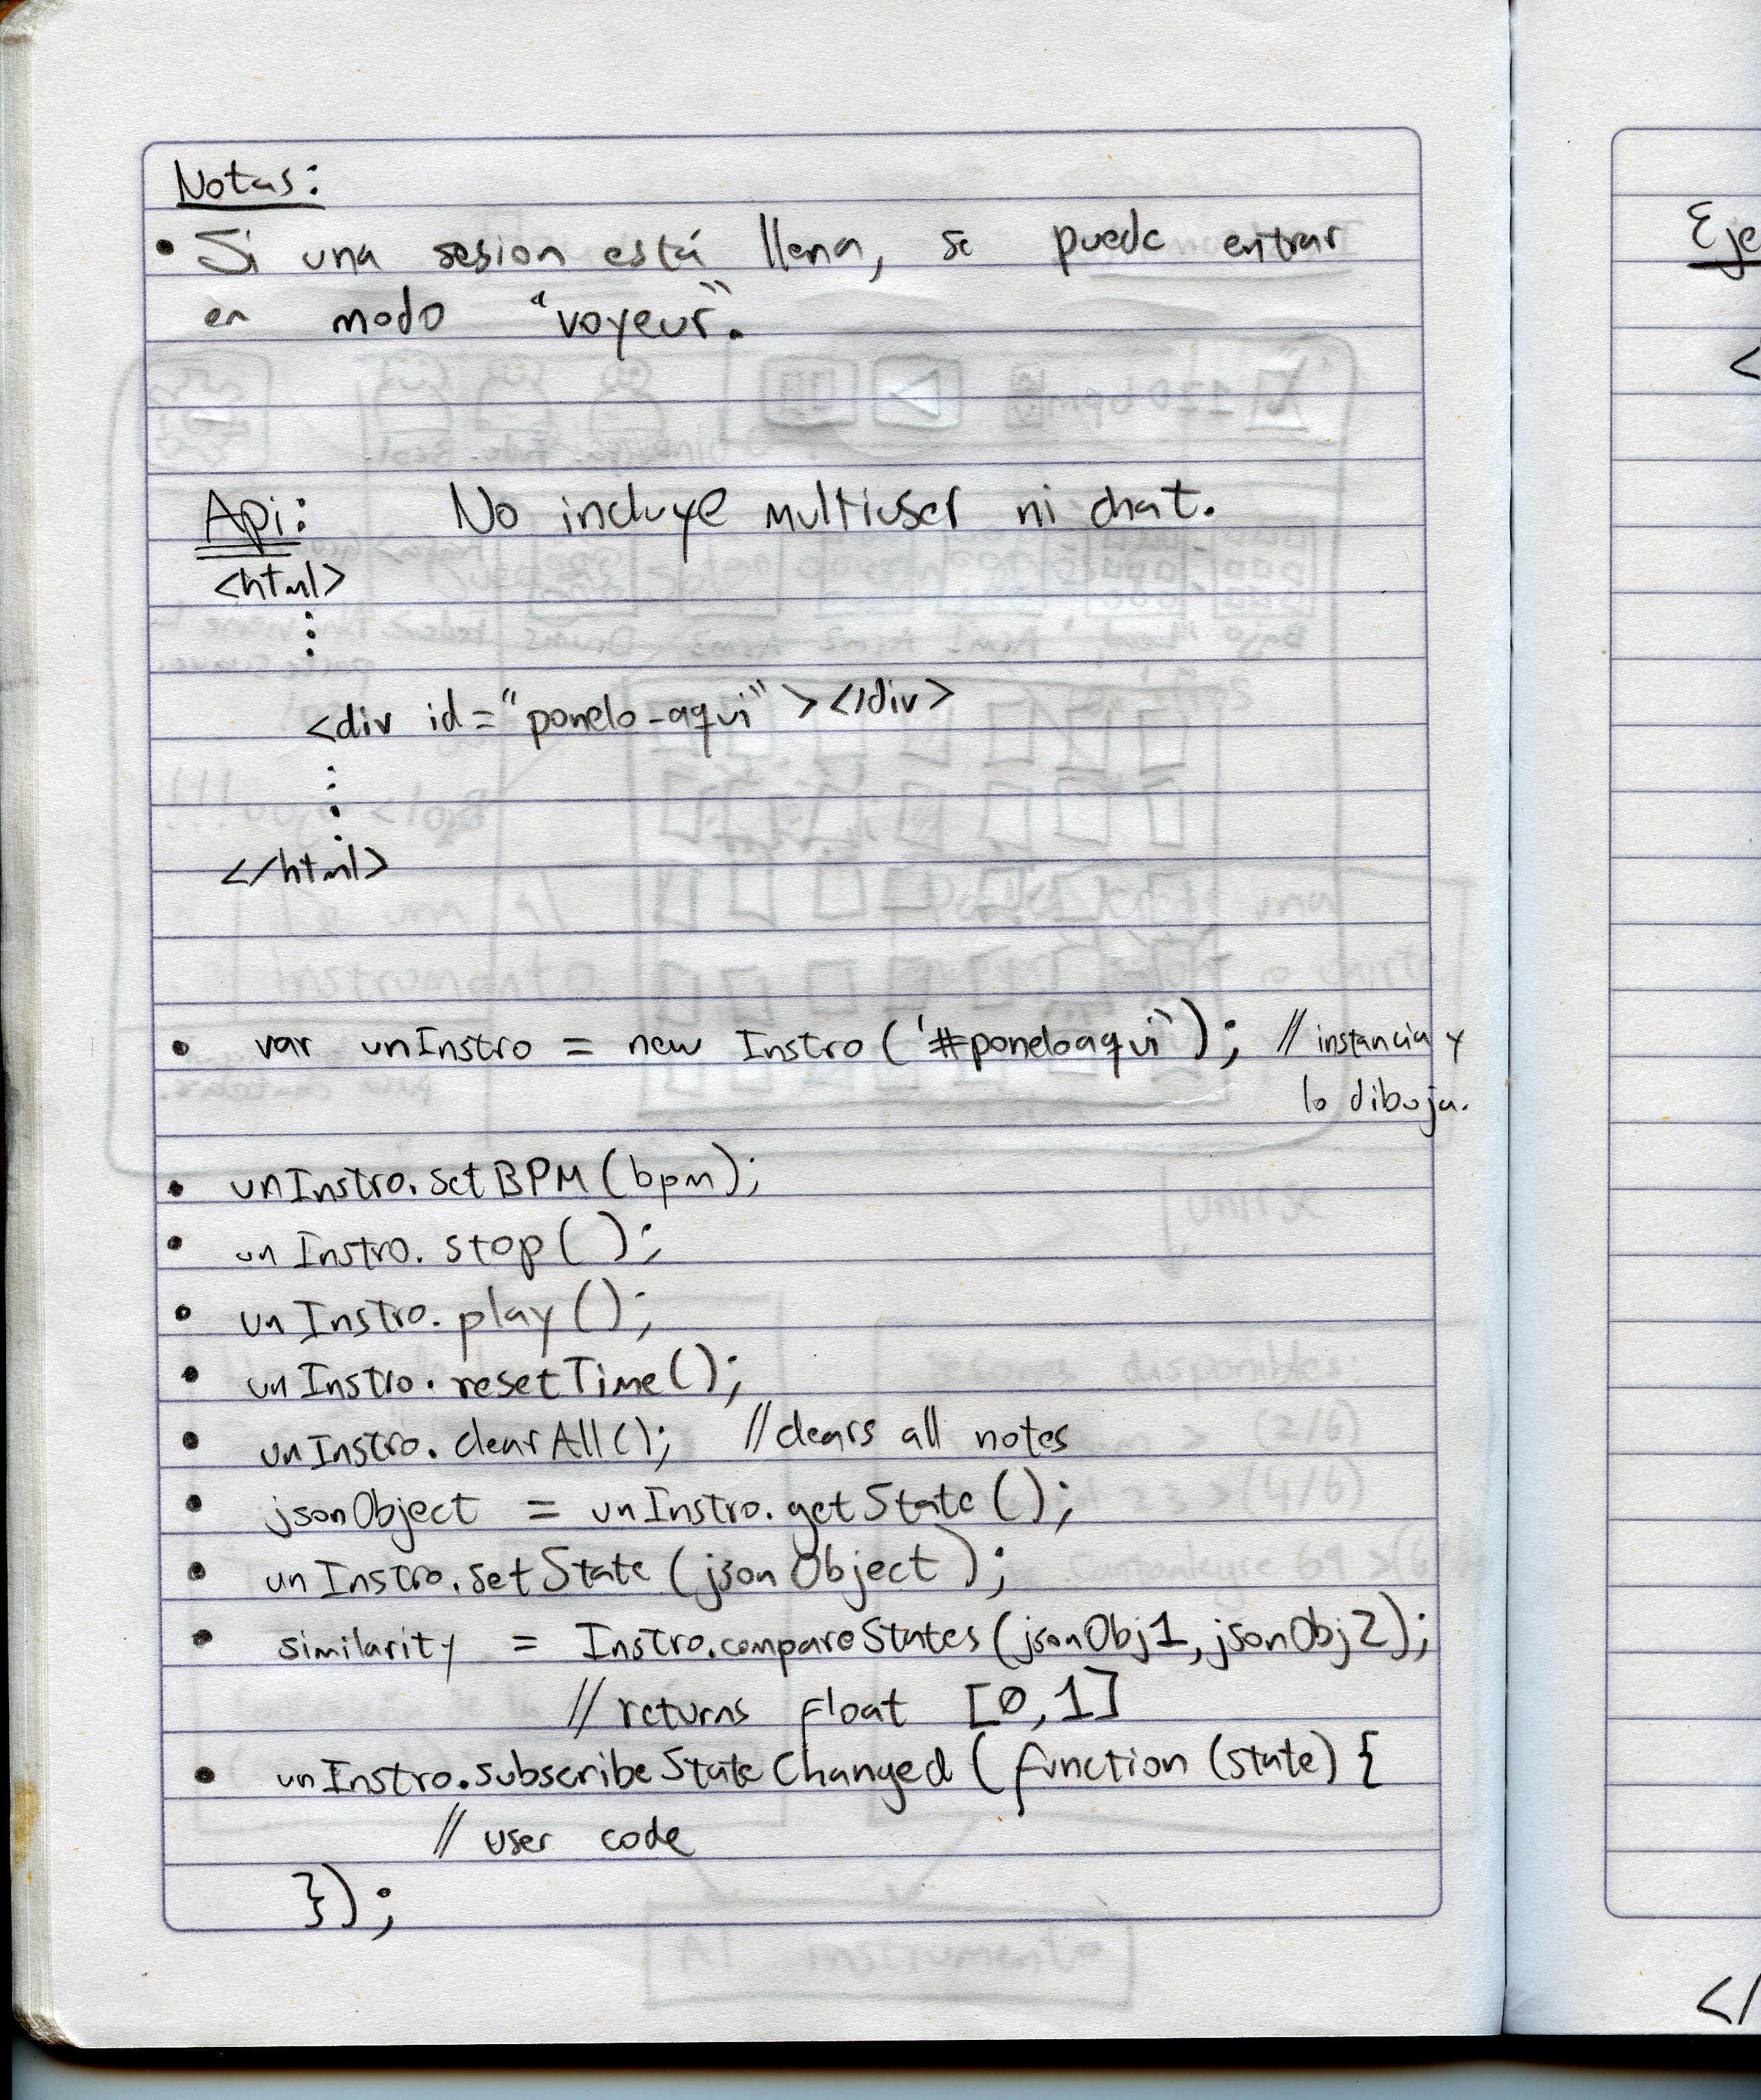 Notas:
• Si una sesion está llena, se puede entrar
en modo "voyeur".
Api: No incluye multiuser ni chat.
<html>
⋮
<div id="ponelo-aqui"></div>
⋮
</html>
• var unInstro = new Instro('#poneloaqui'); // instancia y
lo dibuja.
• unInstro.setBPM(bpm);
• unInstro.stop();
• unInstro.play();
• unInstro.resetTime();
• unInstro.clearAll(); //clears all notes
• jsonObject = unInstro.getState();
• unInstro.setState(jsonObject);
• similarity = Instro.compareStates(jsonObj1, jsonObj2);
// returns float [0,1]
• unInstro.subscribeStateChanged(function(state){
// user code
});
Eje
<
</